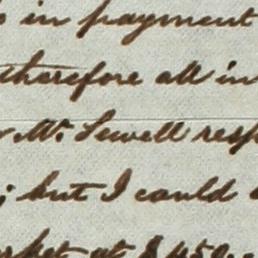 in payment
therefore all in
Mr. Sewell resp
; but I could
at $450